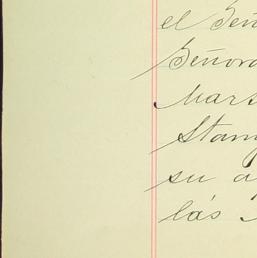 el Señ
Señora
Mars
Stan
su a
las